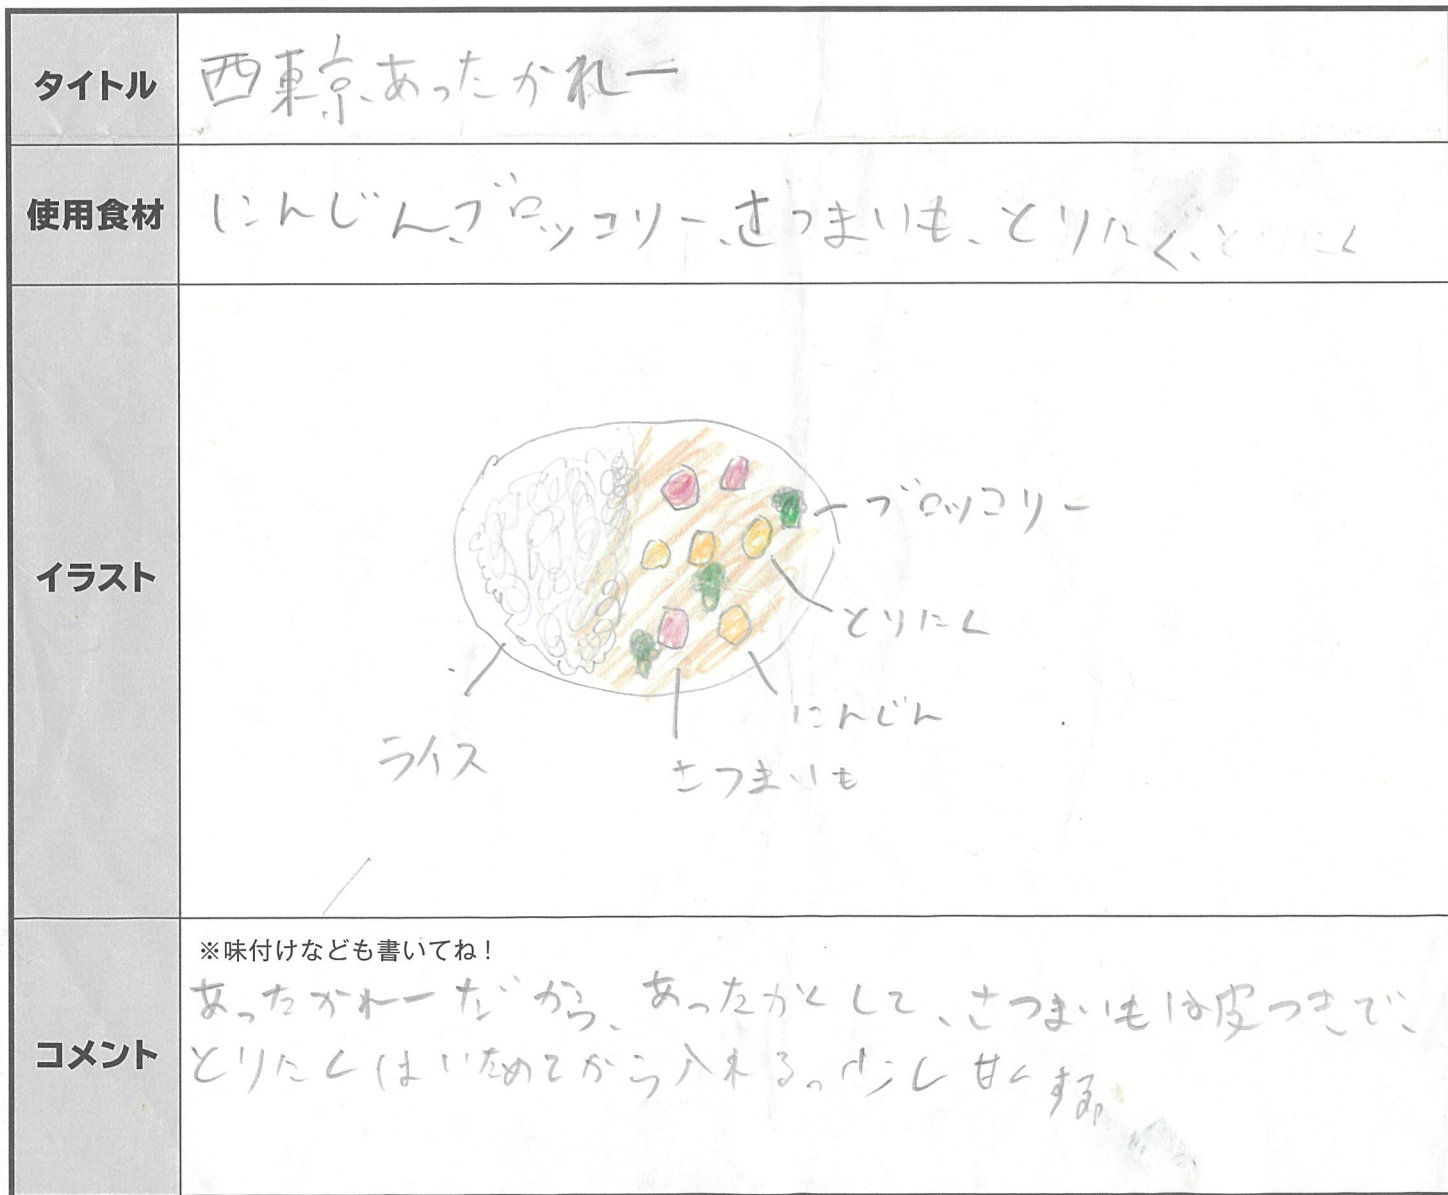 タイトル
西東京あったかれー
使用食材
にんじん、ブロッコリー、さつまいも、とりにく、とりにく
イラスト
ブロッコリー
とりにく
にんじん
さつまいも
ライス
コメント
※味付けなども書いてね！
あったかれーだから、あったかくして、さつまいもは皮つきで、
とりにくはいためてから入れる。少し甘くする。